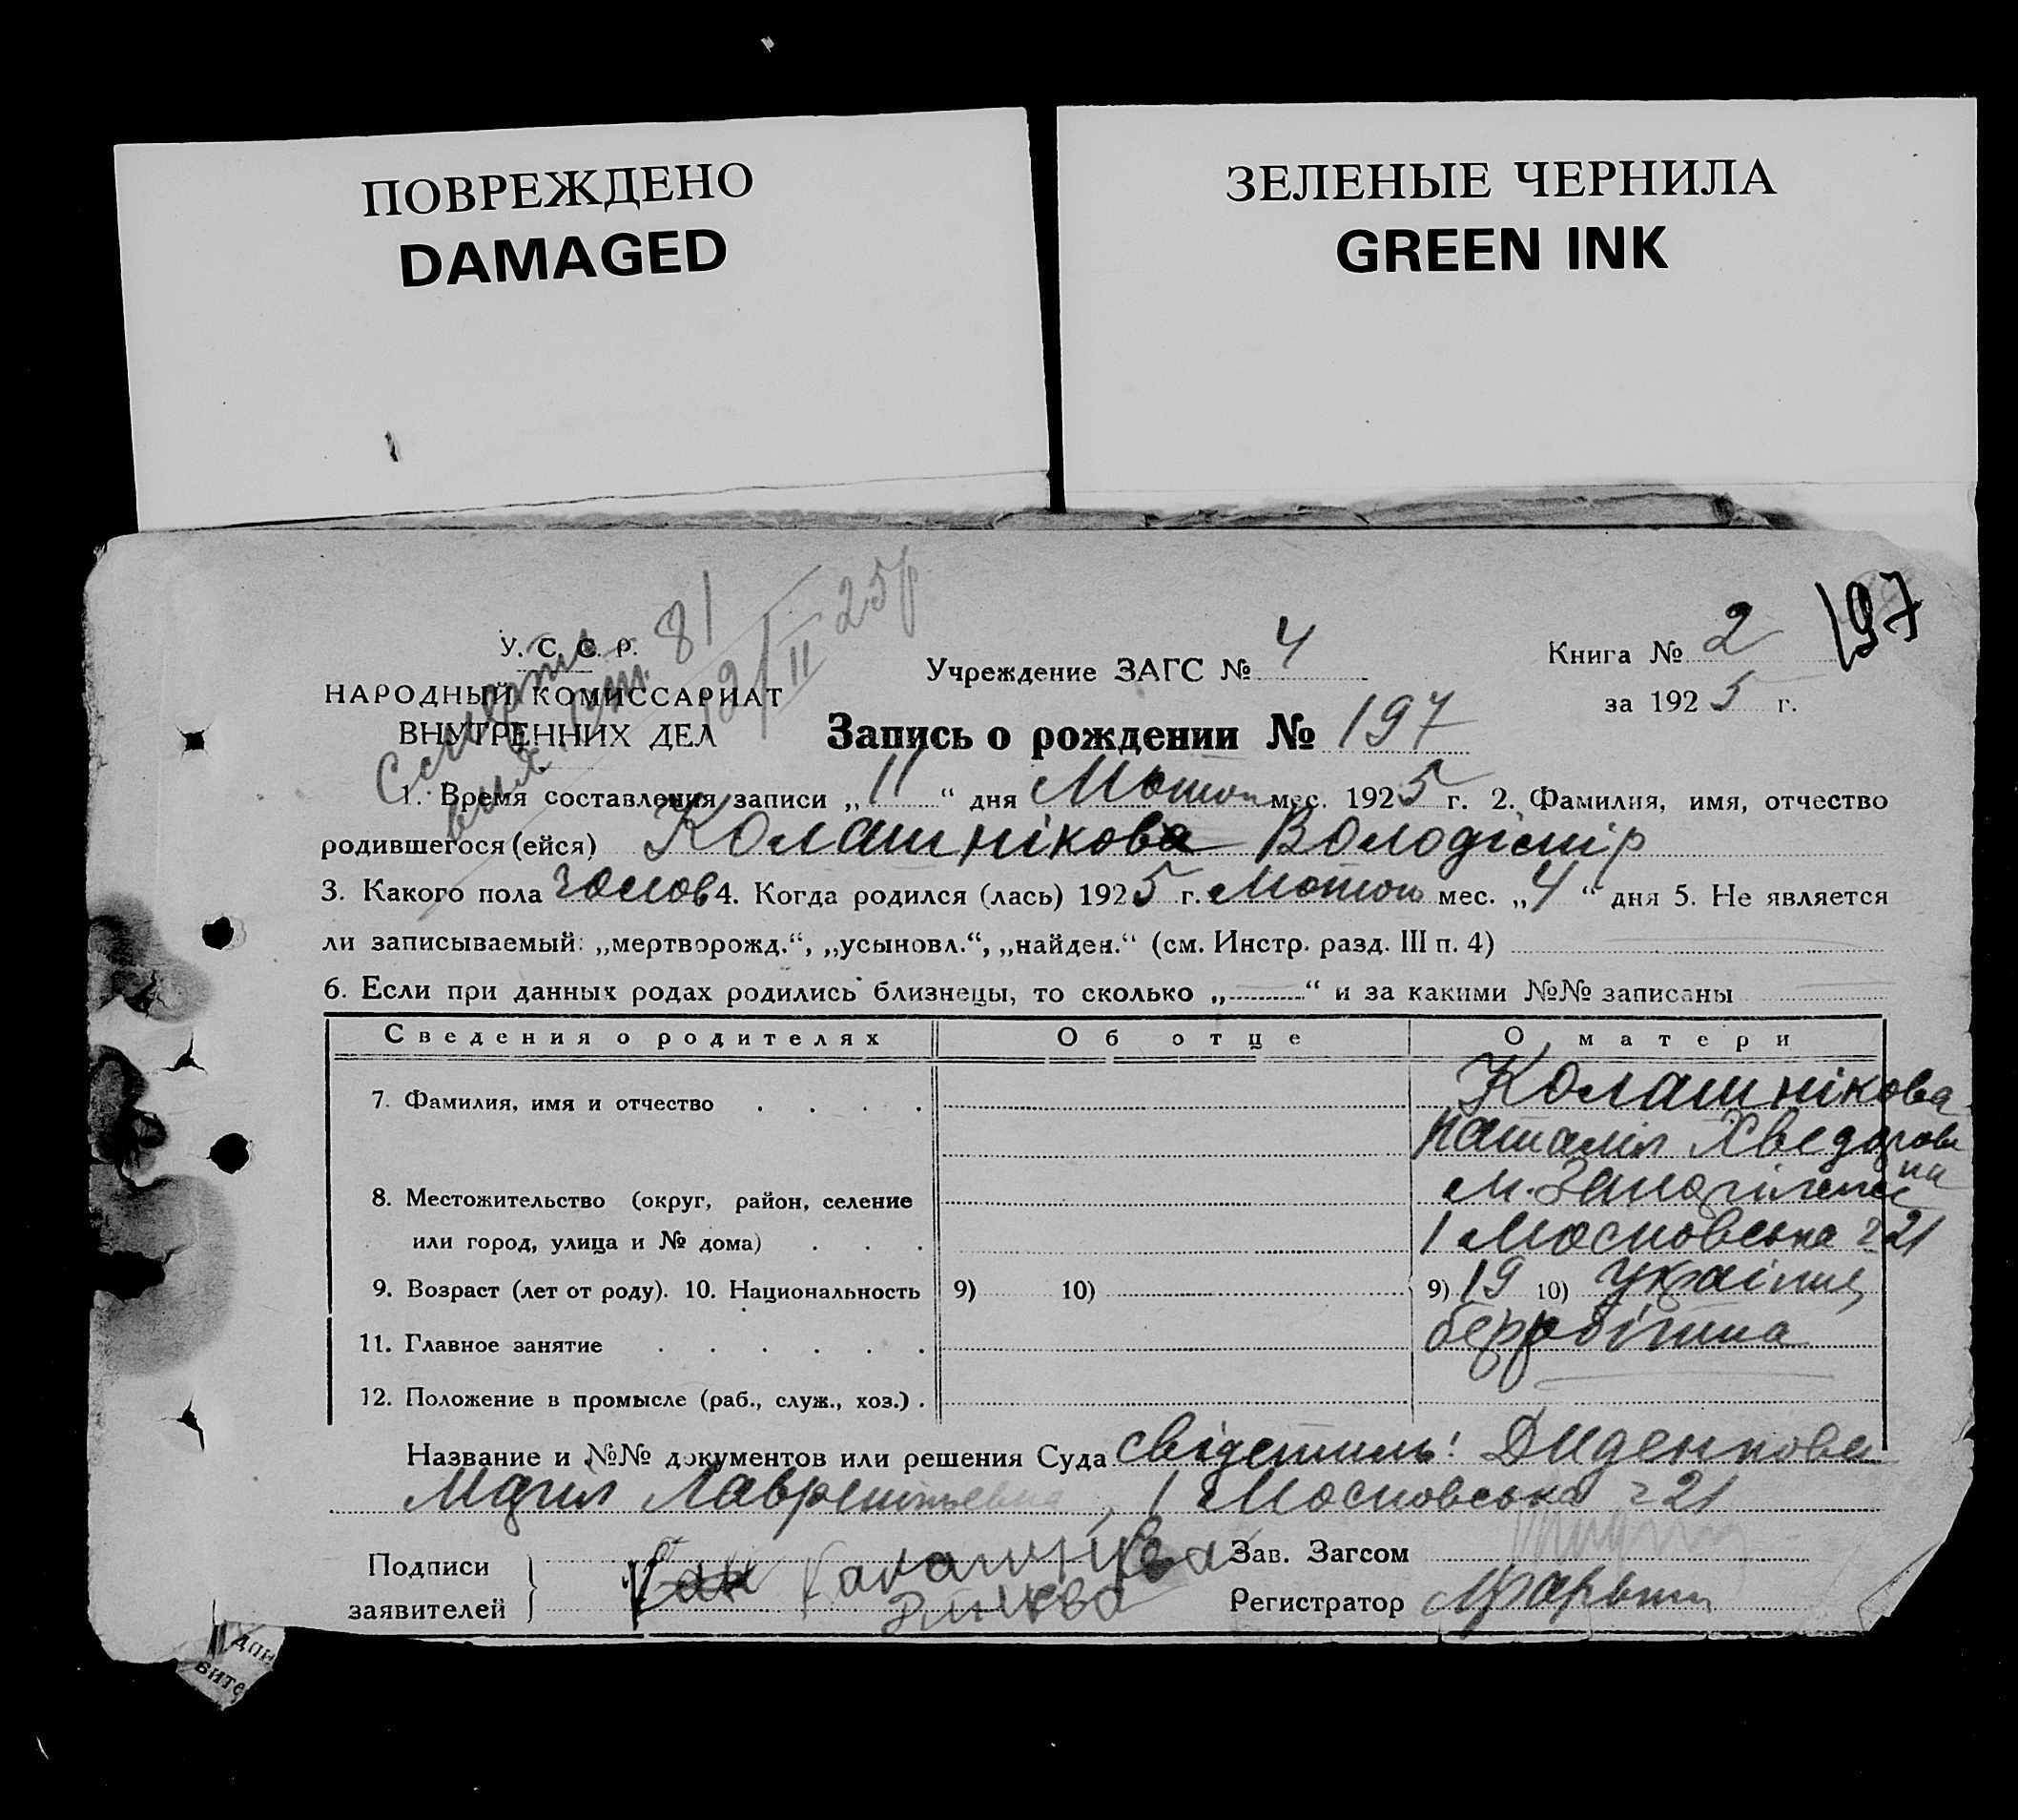 ПОВРЕЖДЕНО
DAMAGED
ЗЕЛЕНЫЕ ЧЕРНИЛА
GREEN INK
197
81 19/II 25р
У. С. С. Р.
НАРОДНЫЙ КОМИССАРИАТ
ВНУТРЕННИХ ДЕЛ
Учреждение ЗАГС № 4
Книга № 2
за 1925 г.
Запись о рождении № 197
1. Время составления записи „11“ дня Мотою мес. 1925 г. 2. Фамилия, имя, отчество
родившегося (ейся) Колашнікова Володімір
3. Какого пола чолов 4. Когда родился (лась) 1925 г. Мотою мес. „4“ дня 5. Не является
ли записываемый: „мертворожд.“, „усыновл.“, „найден.“ (см. Инстр. разд. III п. 4)
6. Если при данных родах родились близнецы, то сколько „ “ и за какими №№ записаны
Сведения о родителях Об отце О матери
7. Фамилия, имя и отчество Колашнікова
Наталія Хведоровна
8. Местожительство (округ, район, селение м.
или город, улица и № дома) 1 Московська 21
9. Возраст (лет от роду). 10. Национальность 9) 10) 9) 19 10) українц
11. Главное занятие безробітна
12. Положение в промысле (раб., служ., хоз.)
Название и №№ документов или решения Суда свідетиль: Диденкова
Марія Лаврентьевна, 1 Московська 21
Подписи
заявителей
Зав. Загсом
Регистратор